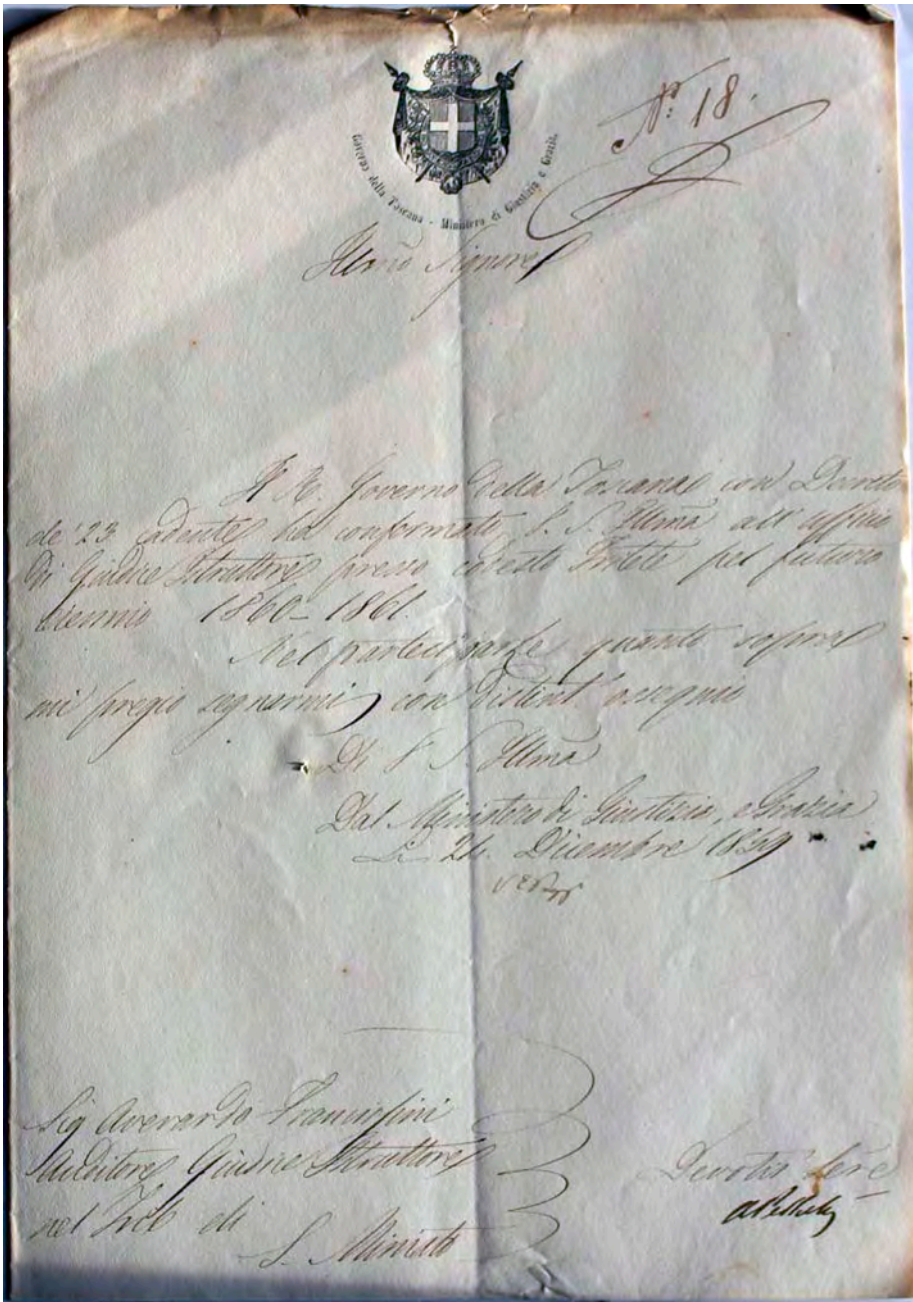 N.º 18.
Governo della Toscana - Ministero di Giustizia e Grazia.
Illmo Signore
Il R. Governo della Toscana con Decreto
de' 23 cadente ha confermato S. S. Illma all' uffizio
di Giudice Istruttore presso codesto pel futuro
biennio 1860 - 1861.
Nel parteciparle quanto sopra
mi pregio segnarmi con distint' ossequio
Di S. S. Illma
Dal Ministero di Giustizia, e Grazia
Li 24. Dicembre 1859
Sig Averardo Franceschini
Auditore Giudice Istruttore
nel Trib di
S. Miniato
Devotmo Serre